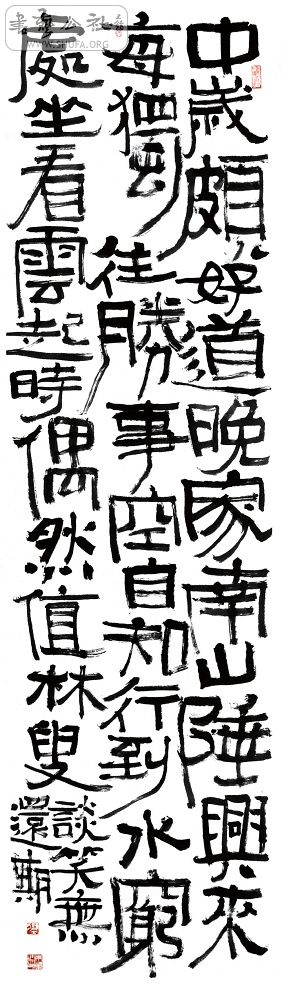 中歲頗好道晚家南山陲興來
每獨往勝事空自知行到水窮
處坐看雲起時偶然值林叟
談笑無
還期
WWW.SHUFA.ORG